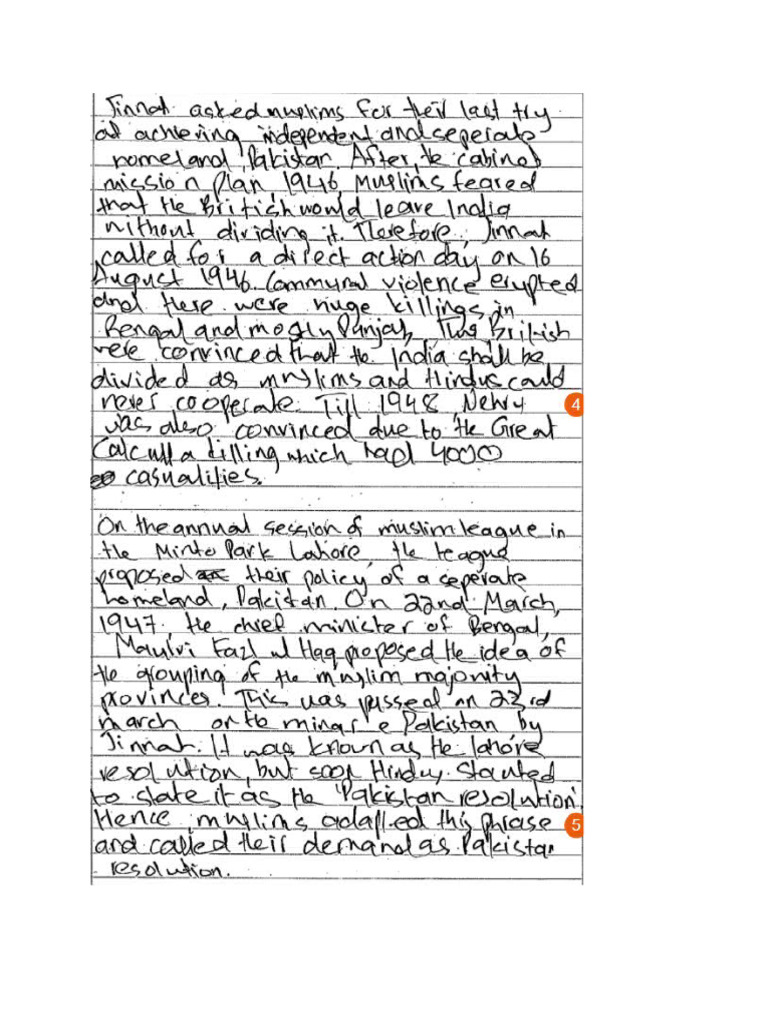 Jinnah asked muslims for their last try
at achieving independent and seperate
homeland, Pakistan. After the cabinet
mission plan 1946, Muslims feared
that the British would leave India
without dividing it. Therefore, Jinnah
called for a direct action day on 16
August 1946. Communal violence erupted
and there were huge killings in
Bengal and mostly Punjab, Thus British
were convinced that the India shall be
divided as muslims and Hindus could
never cooperate. Till 1948, Nehru
4
was also convinced due to the Great
Calcutta killing which had 4000
casualities.
On the annual session of muslim league in
the Minto Park Lahore, the league
proposed their policy of a seperate
homeland, Pakistan. On 22nd March,
1947. the chief minister of Bengal,
Maulvi Fazl ul Haq proposed the idea of
the grouping of the muslim majority
provinces. This was passed on 23rd
march on the minar e Pakistan by
Jinnah. It was known as the lahore
resolution, but soon Hindus started
to state it as the 'Pakistan resolution'
Hence, muslims adapted this phrase
5
and called their demand as Pakistan
resolution.